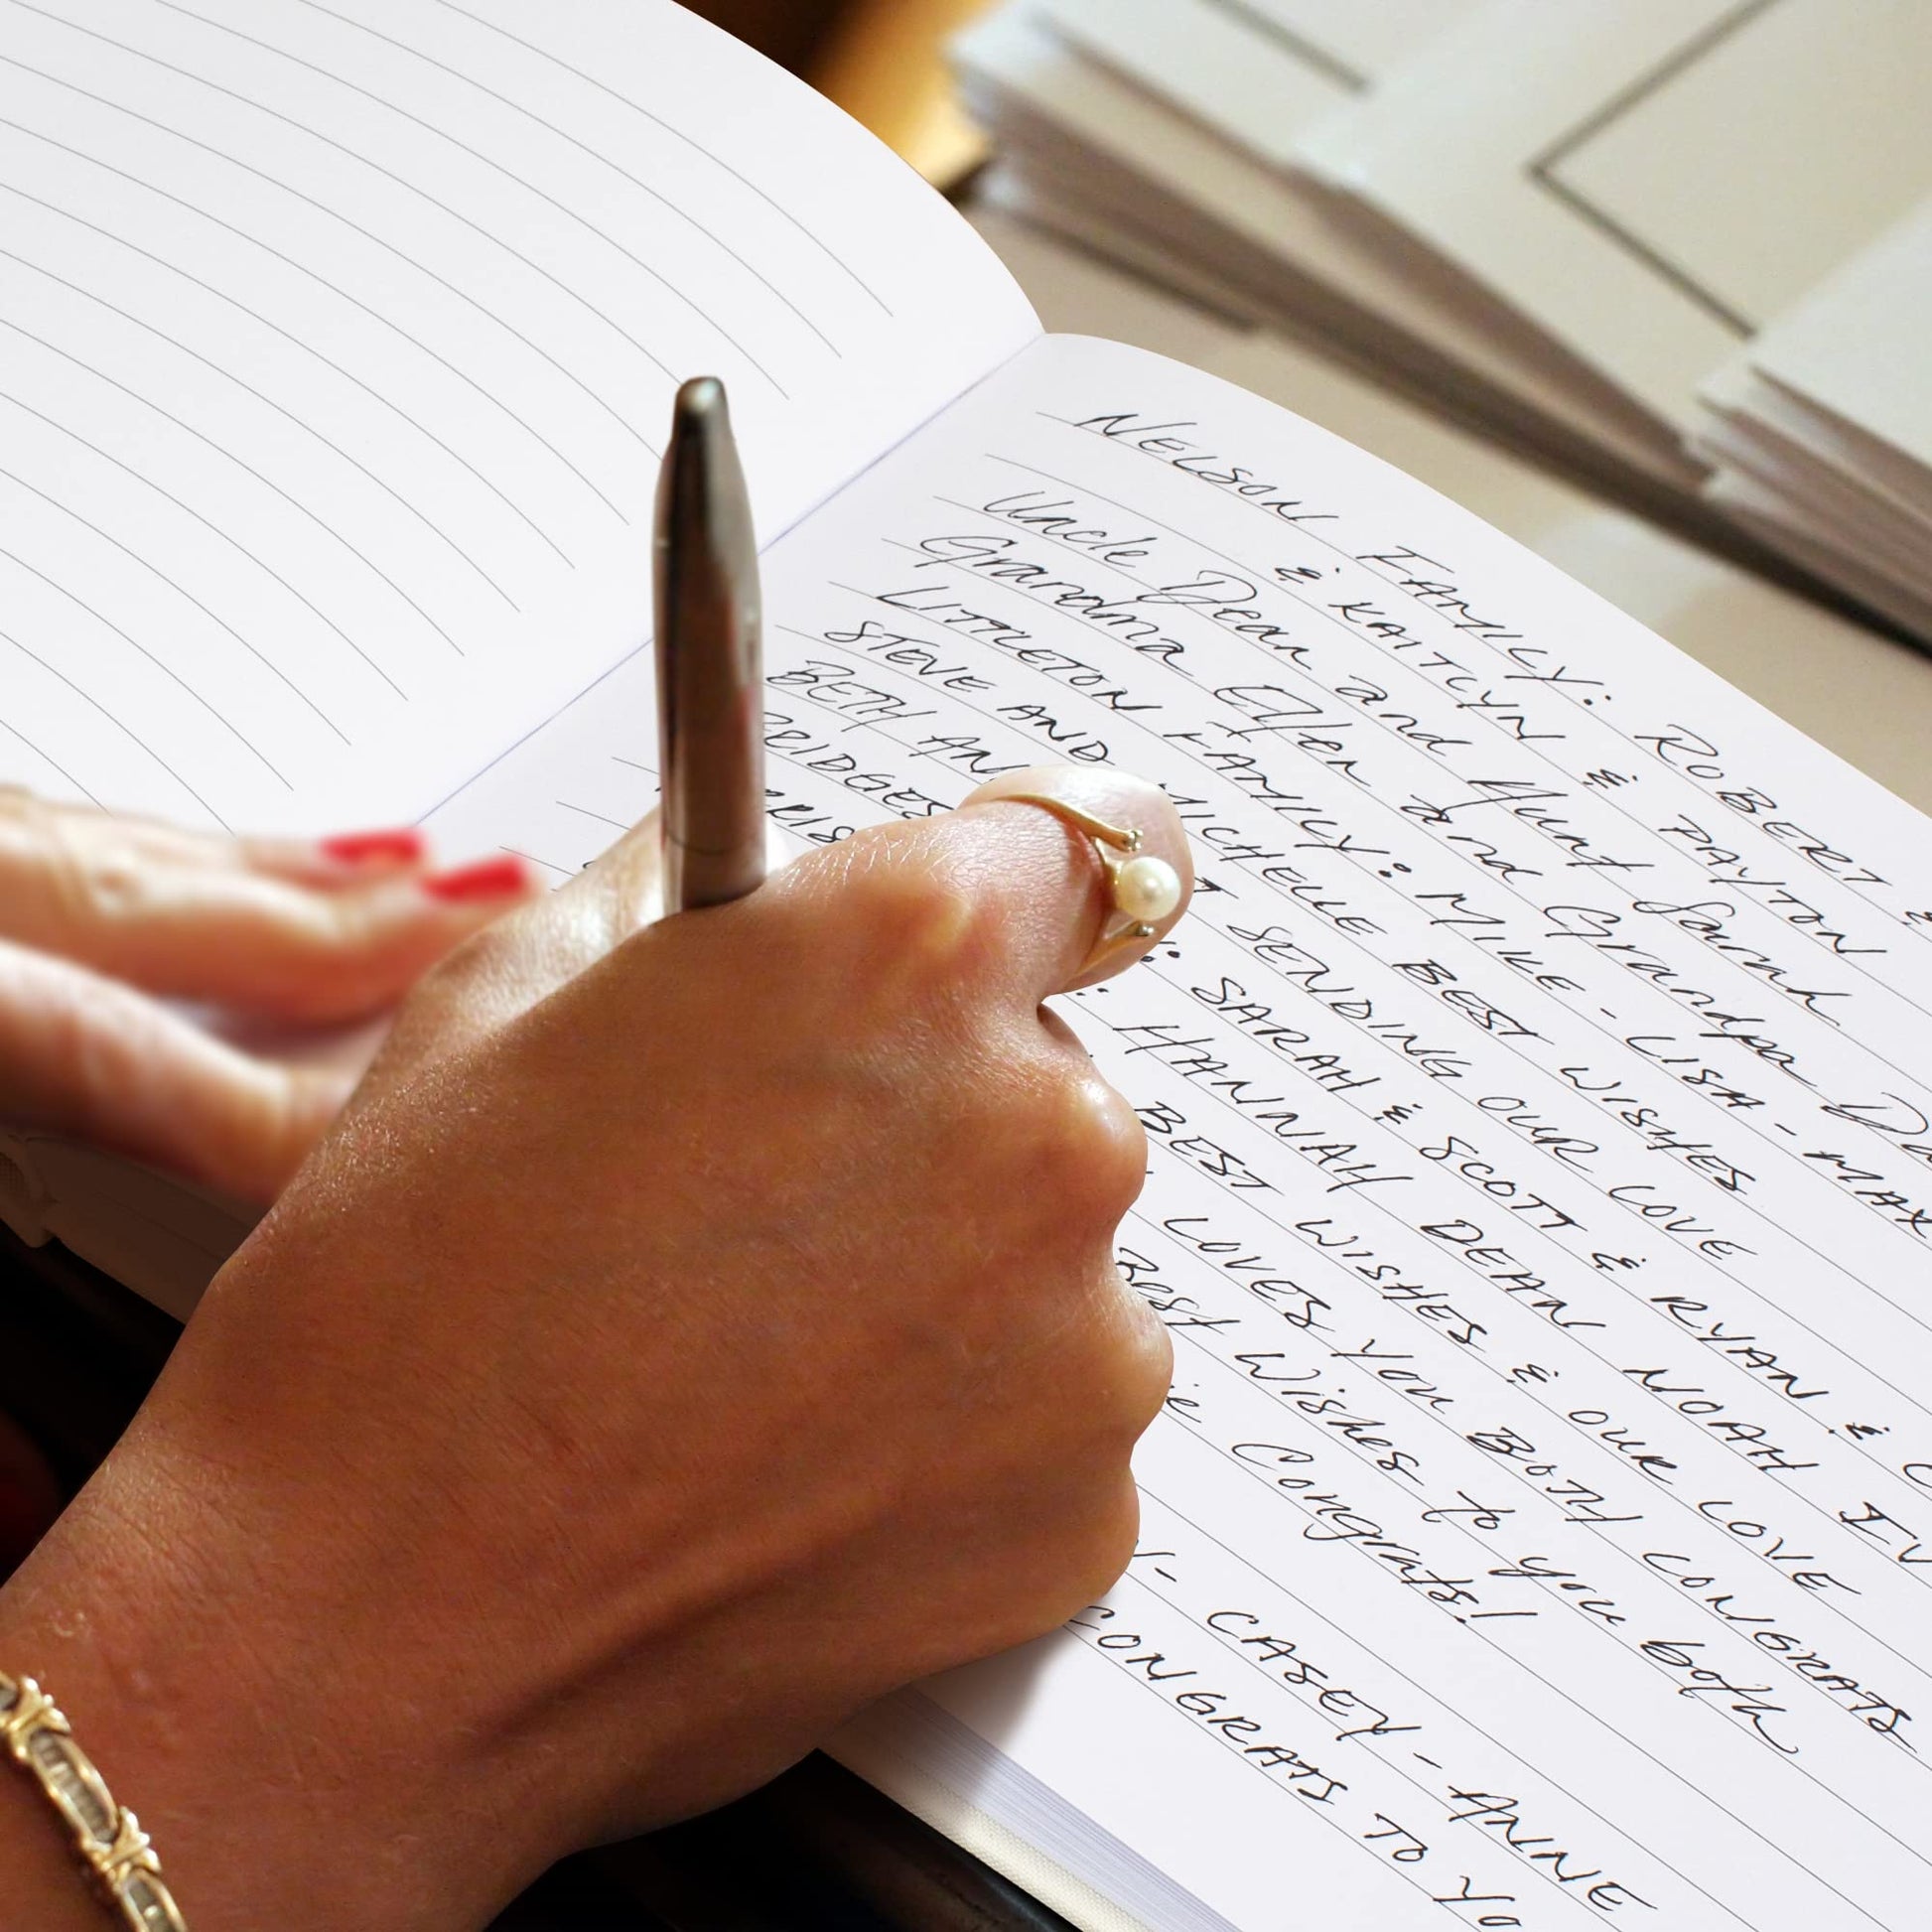 NELSON FAMILY: ROBERT &
& KAITLYN & PAYTON
Uncle Dean and Aunt Sarah
Grandma Ellen and Grandpa
LITTLETON FAMILY: MIKE - LISA - MAX
STEVE AND MICHELLE BEST WISHES
BETH SENDING OUR LOVE
SARAH & SCOTT & RYAN &
HANNAH DEAN NOAH
BEST WISHES & OUR LOVE
LOVES YOU BOTH CONGRATS
Best Wishes to you both
Congrats!
- CASEY - ANNE
CONGRATS TO